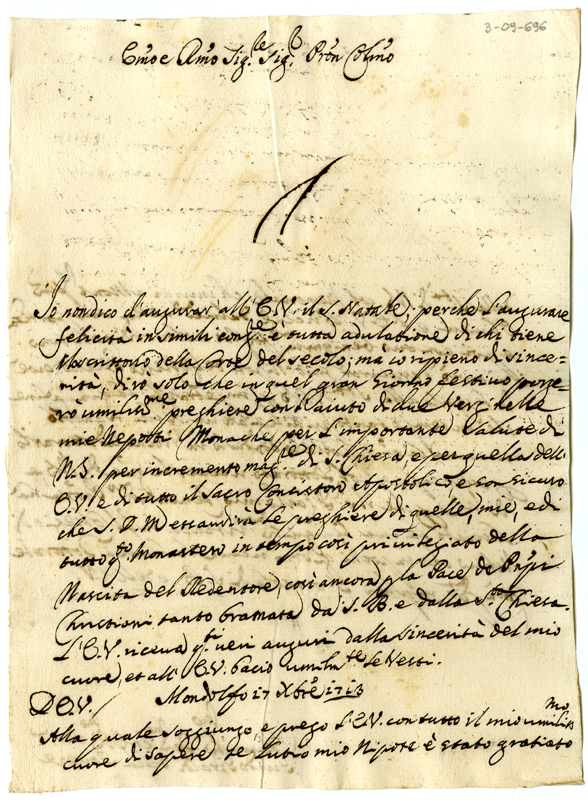 3-09-696
Emo e Rmo Sig.re Sig.r Pron Colmo
Io non dico d'augurar' all' E.V. il S. Natale, perche l'augurare
felicità in simili cong.re è tutta adulatione di chi tiene
della Corte del secolo; ma io ripieno di since=
rità, dirò solo, che in quel gran Giorno festivo porge=
rò umiliss.me preghiere con l'aiuto di due Verginelle
mie Nepoti Monache per l'importante salute di
N.S. per incremento mag.re di S. Chiesa, e per quella dell'
E.V. e di tutto il Sacro Concistoro Apostolico e son sicuro
che S.D.M. essaudirà le preghiere di quelle, mie, e di
tutto q.to Monastero in tempo così privilegiato della
Nascita del Redentore, così ancora p la Pace de Pnpi
Christiani tanto bramata da S.B. e dalla S.ta Chiesa.
L'E.V. riceva q.ti veri auguri dalla sincerità del mio
cuore, et all' E.V. bacio umilm.te le Vesti.
D E.V. / Mondolfo 17 Xbre 1713
Alla quale soggiungo, e prego l'E.V. con tutto il mio umiliss.mo
cuore di sapere se mio Nipote è stato gratiato